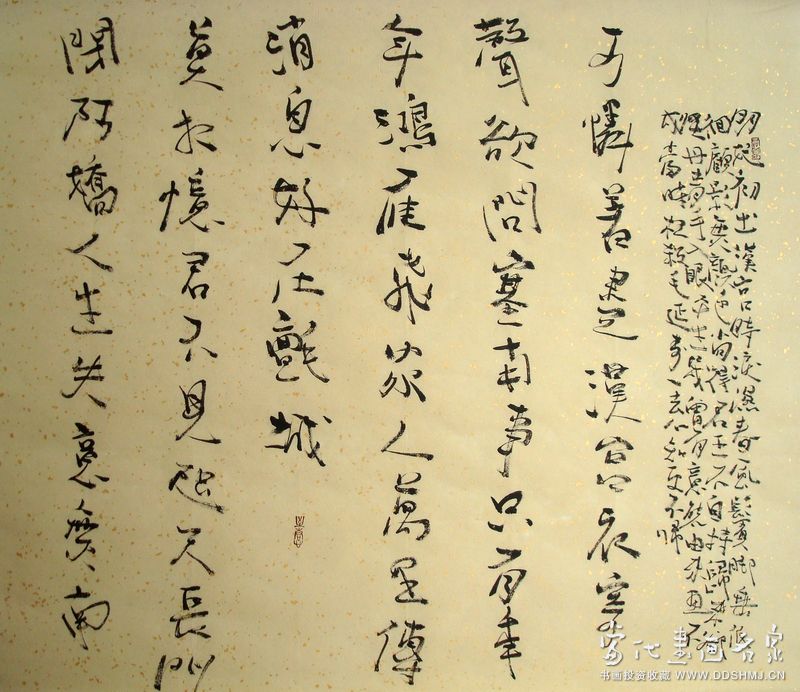 明妃初出漢宮時淚濕春風鬢腳垂低
徊顧影無顏色尚得君王不自持歸來卻
怪丹青手入眼平生幾曾有意態由來畫不
成當時枉殺毛延壽一去心知更不歸
可憐著盡漢宮衣寄
聲欲問塞南事只有年
年鴻雁飛家人萬里傳
消息好在氈城
莫相憶君不見咫尺長門
閉阿嬌人生失意無南
當代書畫名家
书画投资收藏 WWW.DDSHMJ.CN